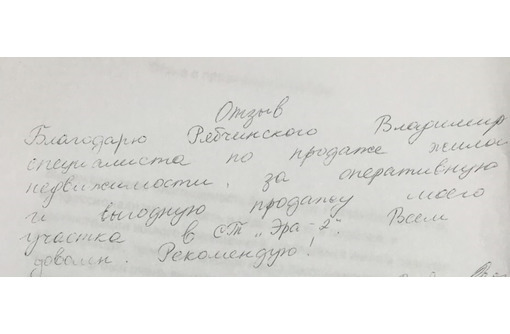 Отзыв
Благодарю Рябчинского Владимир
специалиста по продаже жилой
недвижимости, за оперативную
и выгодную продажу моего
участка в СТ „Эра-2". Всем
доволен. Рекомендую!